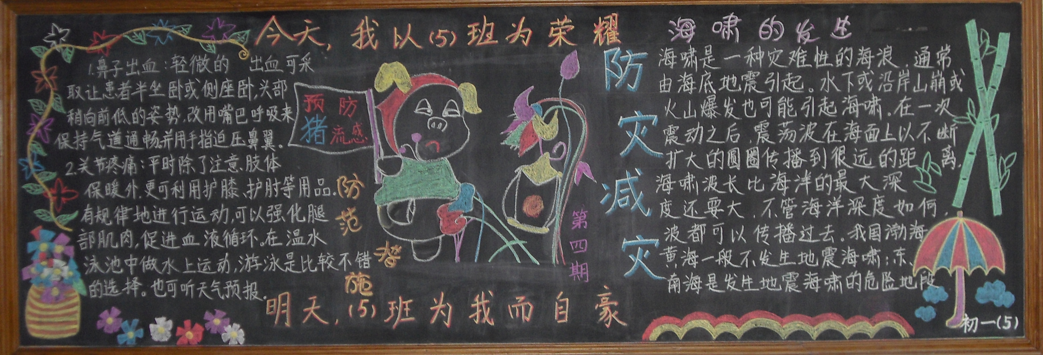 今天,我以(5)班为荣耀
1.鼻子出血:轻微的 出血可采
取让患者半坐卧或侧座卧,头部
稍向前低的姿势,改用嘴巴呼吸来
保持气道通畅并用手指迫压鼻翼。
2.关节疼痛:平时除了注意肢体
保暖外,更可利用护膝、护肘等用品.
有规律地进行运动,可以强化腿
部肌肉,促进血液循环。在温水
泳池中做水上运动,游泳是比较不错
的选择。也可听天气预报。
预防
猪流感
防范措施
第四期
明天,(5)班为我而自豪
防灾减灾
海啸的发生
海啸是一种灾难性的海浪,通常
由海底地震引起。水下或沿岸山崩或
火山爆发也可能引起海啸。在一次
震动之后,震荡波在海面上以不断
扩大的圆圈传播到很远的距离.
海啸波长比海洋的最大深
度还要大,不管海洋深度如何,
波都可以传播过去。我国渤海
黄海一般不发生地震海啸;东、
南海是发生地震海啸的危险地段
初一(5)